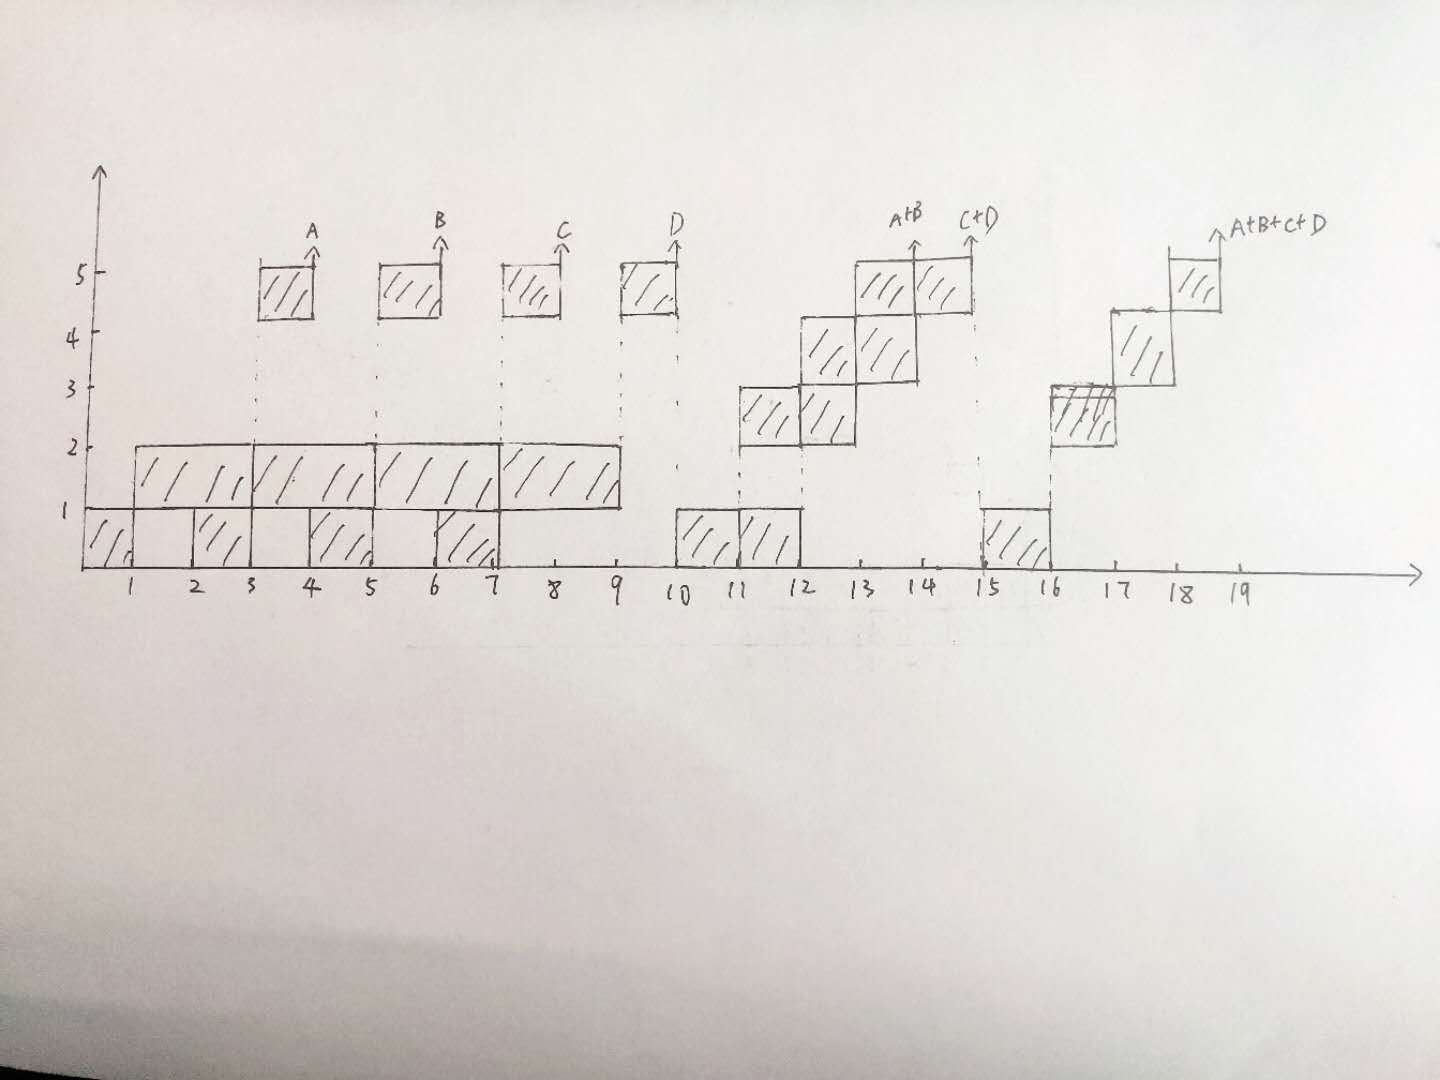 A B C D A+B C+D A+B+C+D
5
4
3
2
1
1 2 3 4 5 6 7 8 9 10 11 12 13 14 15 16 17 18 19